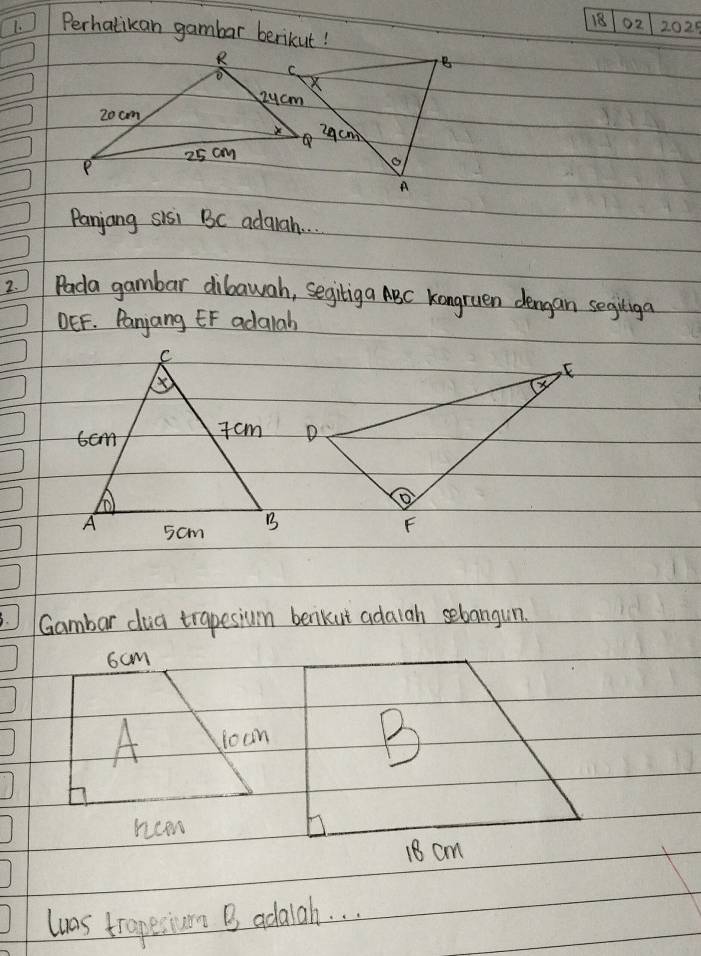 18 02 202
1. Perhatikan gambar berikut!
R
C
x
B
o
24cm
20 cm
x
Q
29cm
P
25 cm
o
A
Panjang sisi BC adalah...
2. Pada gambar dibawah, segitiga ABC kongruen dengan segitiga
DEF. Panjang EF adalah
C
x
E
x
6cm
7cm
D
o
o
A
5cm
B
F
3. Gambar dua trapesium berikut adalah sebangun.
6cm
A
10cm
B
18 cm
luas trapesium B adalah...